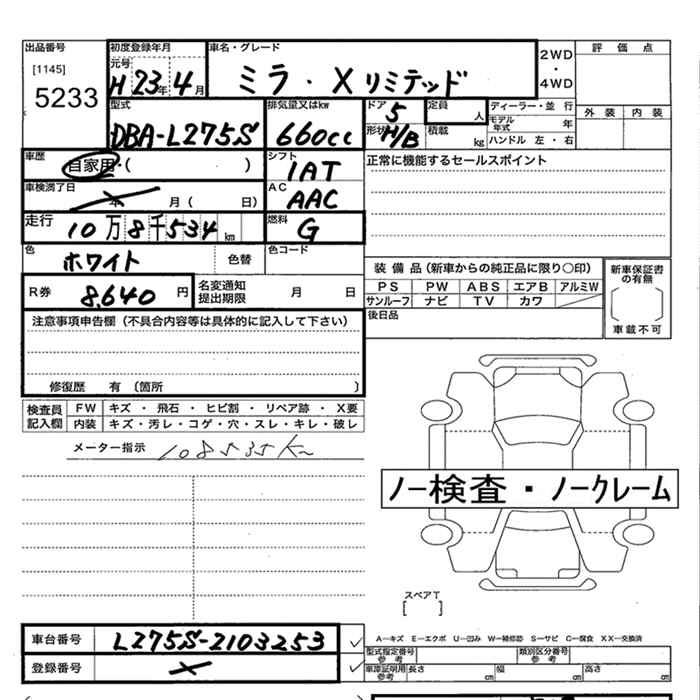 出品番号
[1145]
5233
初度登録年月
元号
H 23年 4月
車名・グレード
ミラ・Xリミテッド
2WD
・
4WD
評価点
外装 内装
型式
DBA-L275S
排気量又はkw
660cc
ドア
5
形状
H/B
定員
人
積載
kg
ディーラー・並行
モデル年式 年
ハンドル 左・右
車歴
自家用・( )
シフト
1AT
正常に機能するセールスポイント
車検満了日
年 月( 日)
AC
AAC
走行
10万8千534km
燃料
G
色
ホワイト
色替
色コード
R券
8,640円
名変通知提出期限 月 日
装備品(新車からの純正品に限り○印)
PS PW ABS エアB アルミW
サンルーフ ナビ TV カワ
新車保証書の有無
車載不可
後日品
注意事項申告欄(不具合内容等は具体的に記入して下さい)
修復歴 有 〔箇所 〕
検査員記入欄
FW キズ・飛石・ヒビ割・リペア跡・X要
内装 キズ・汚レ・コゲ・穴・スレ・キレ・破レ
メーター指示 108535km
ノー検査・ノークレーム
スペアT
[ ]
車台番号 L275S-2103253
登録番号
A―キズ E―エクボ U―凹み W―補修跡 S―サビ C―腐食 XX―交換済
型式指定番号
参考
類別区分番号
参考
車庫証明用
参考
長さ cm 幅 cm 高さ cm